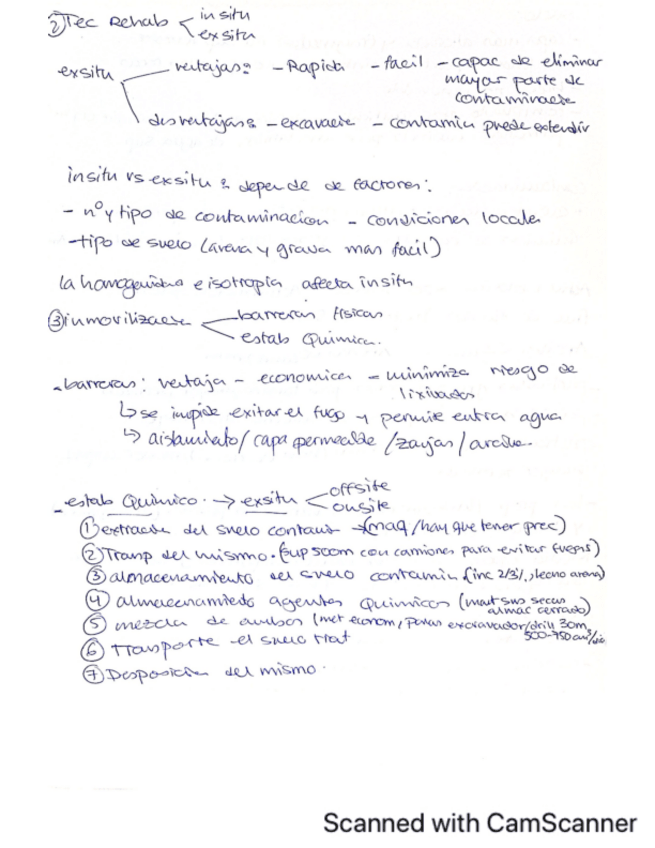 ② Tec Rehab < in situ
exsitu
exsitu ventajas: - Rapida - facil - capac de eliminar
mayor parte de
contaminacese
desventajas: - excavacese - contamin puede extendir
insitu vs exsitu : depende de factores:
- nº y tipo de contaminacion - condiciones locale
- tipo de suelo (arena y grava mas facil)
la homogeneidad e isotropia afecta insitu
③ inmovilizacese < barreras fisicas
estab Quimica.
- barreras: ventaja - economica - minimiza riesgo de
lixiviados
↳ se impide exitar el fugo y permite entra agua
↳ aislamiento / capa permeable / zanjas / arcilla.
- estab Quimico. → exsitu < offsite
onsite
① extracese del suelo contam → (maq / hay que tener prec)
② Transp del mismo. (sup 500m con camiones para evitar fuegos)
③ almacenamiento del suelo contamin (inc 2/3%, lecho arena)
④ almacenamiedo agentes Quimicos (mat sus secas
almac cerrado)
⑤ mezcla de ambos (met econom, palas excavador / 30m,
500-750
⑥ Trasporte el suelo trat
⑦ Desposicion del mismo.
Scanned with CamScanner